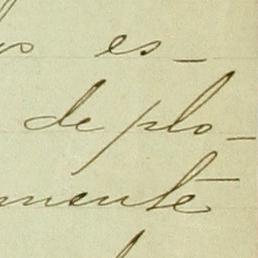 es-
de plo-
mente